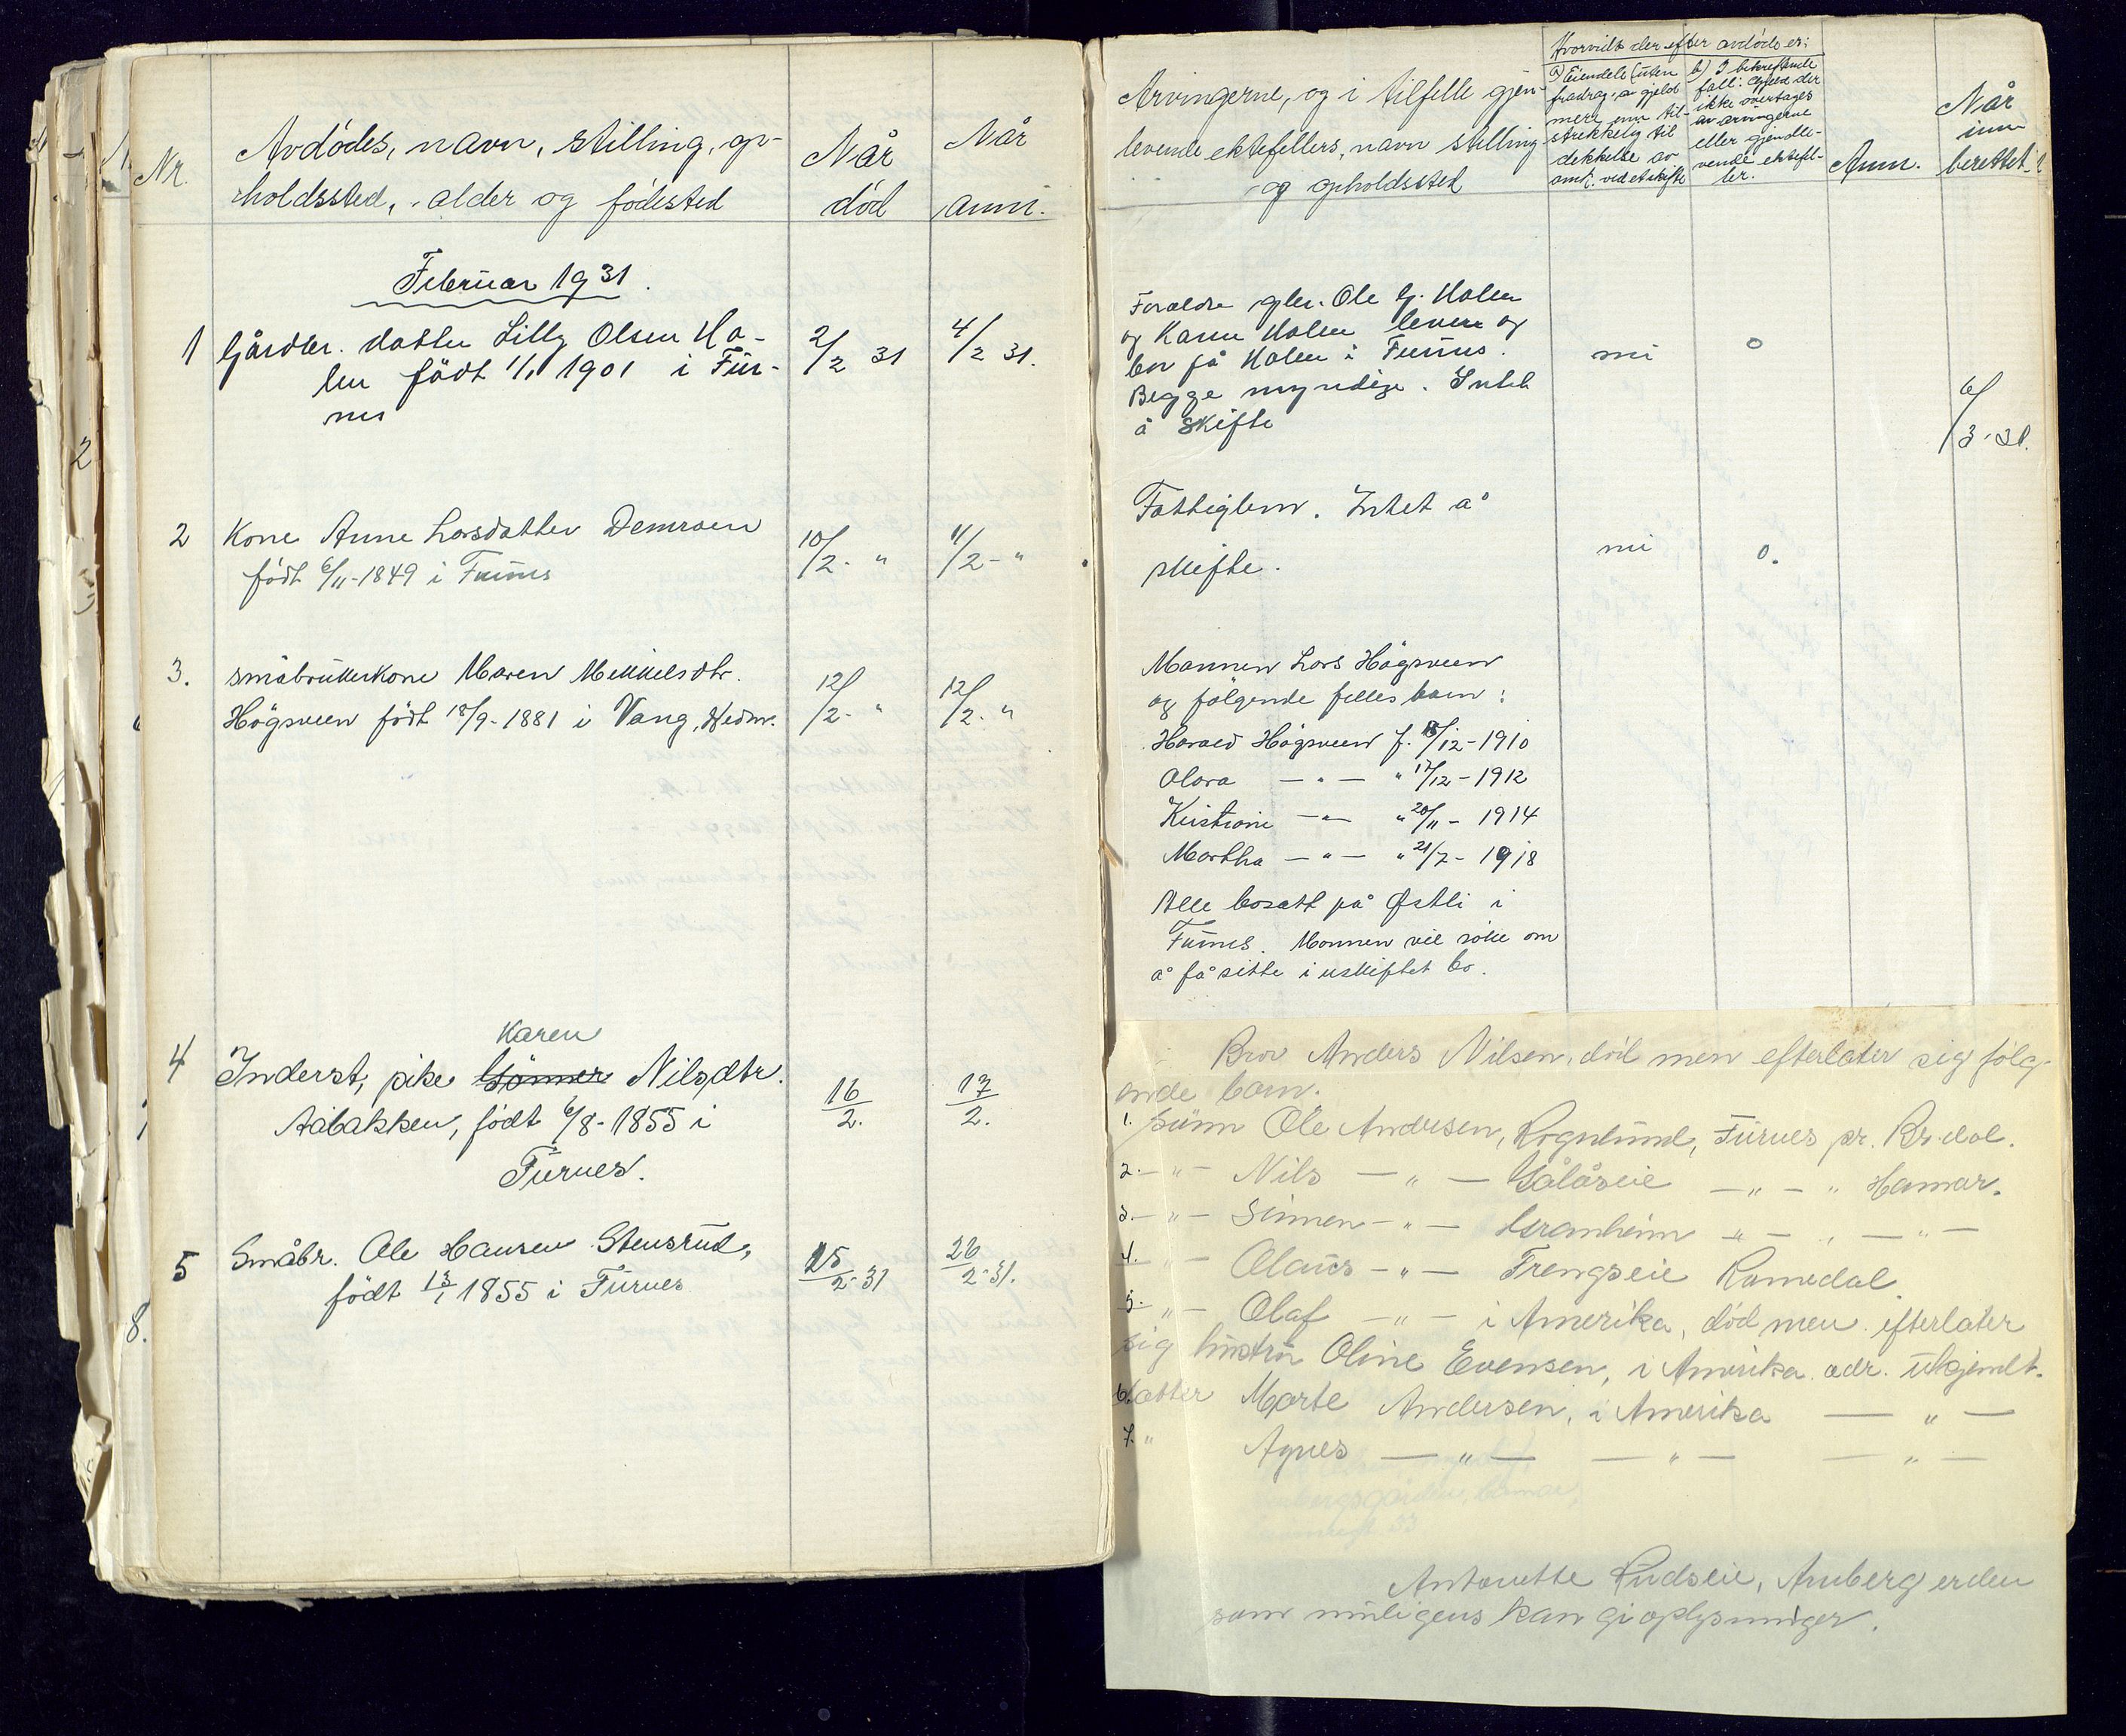 Nr.
Avdødes, navn, stilling, op-
holdssted, alder og fødested
Når
død
Når
anm.
Februar 1931.
1 Gårdbr. datter Lilly Olsen Ho-
len født 1/1 1901 i Fur-
nes
2/2 31
4/2 31.
2 Kone Anne Larsdatter Demroen
født 6/11-1849 i Furnes
10/2- "
11/2- "
3. Småbrukerkone Maren Mikkelsdtr.
Högsveen født 18/9-1881 i Vang, Hedm.
12/2- "
12/2- "
Karen
4 Inderst, pike Gönner Nilsdtr.
Aabakken, født 6/8-1855 i
Furnes.
16/2.
17/2.
5 Småbr. Ole Hansen Stensrud,
født 13/1 1855 i Furnes
25/2-31
26/2-31.
2
8.
Arvingerne, og i tilfelle gjen-
levende ektefellers, navn stilling
og opholdssted
Hvorvidt der efter avdøde er:
a) Eiendele (uten
fradrag av gjeld
mere enn til-
strekkelig til
dekkelse av
omk. ved et skifte
b) I bekreftende
fall: Gjeld der
ikke overtages
av arvingerne
eller gjenle-
vende ektefel-
ler.
Anm.
Når
inn
berettet
Foreldre gbr. Ole G. Holen
og Karen Holen lever og
bor på Holen i Furnes.
Begge myndige. Intet
å skifte
nei
0
6/3-31.
Fattiglem. Intet å
skifte.
nei
0.
Mannen Lars Högsveen
og følgende felles barn:
Harald Högsveen f. 15/12-1910
Olora — " — " 17/12-1912
Kristiane — " — " 20/11- 1914
Martha — " — " 21/7- 1918
Alle bosatt på Østli i
Furnes. Mannen vil søke om
å få sitte i uskiftet bo.
Bror Anders Nilsen, død men efterlater sig følg-
ende barn.
1. Sønn Ole Andersen, Rognlund, Furnes pr. Br.dal.
2. — " — Nils — " — Gålåseie — " — " Hamar.
3. — " — Simen — " — Granheim — " — " — " —
4. — " — Olaus — " — Frengseie Romedal.
5. — " — Olaf — " — i Amerika, død men efterlater
sig hustru Oline Evensen, i Amerika adr. ukjendt.
6. Datter Marte Andersen, i Amerika — " —
7. " Agnes — " — — " — — " —
Antonette Rudseie, Arnberg er den
som muligens kan gi oplysninger.